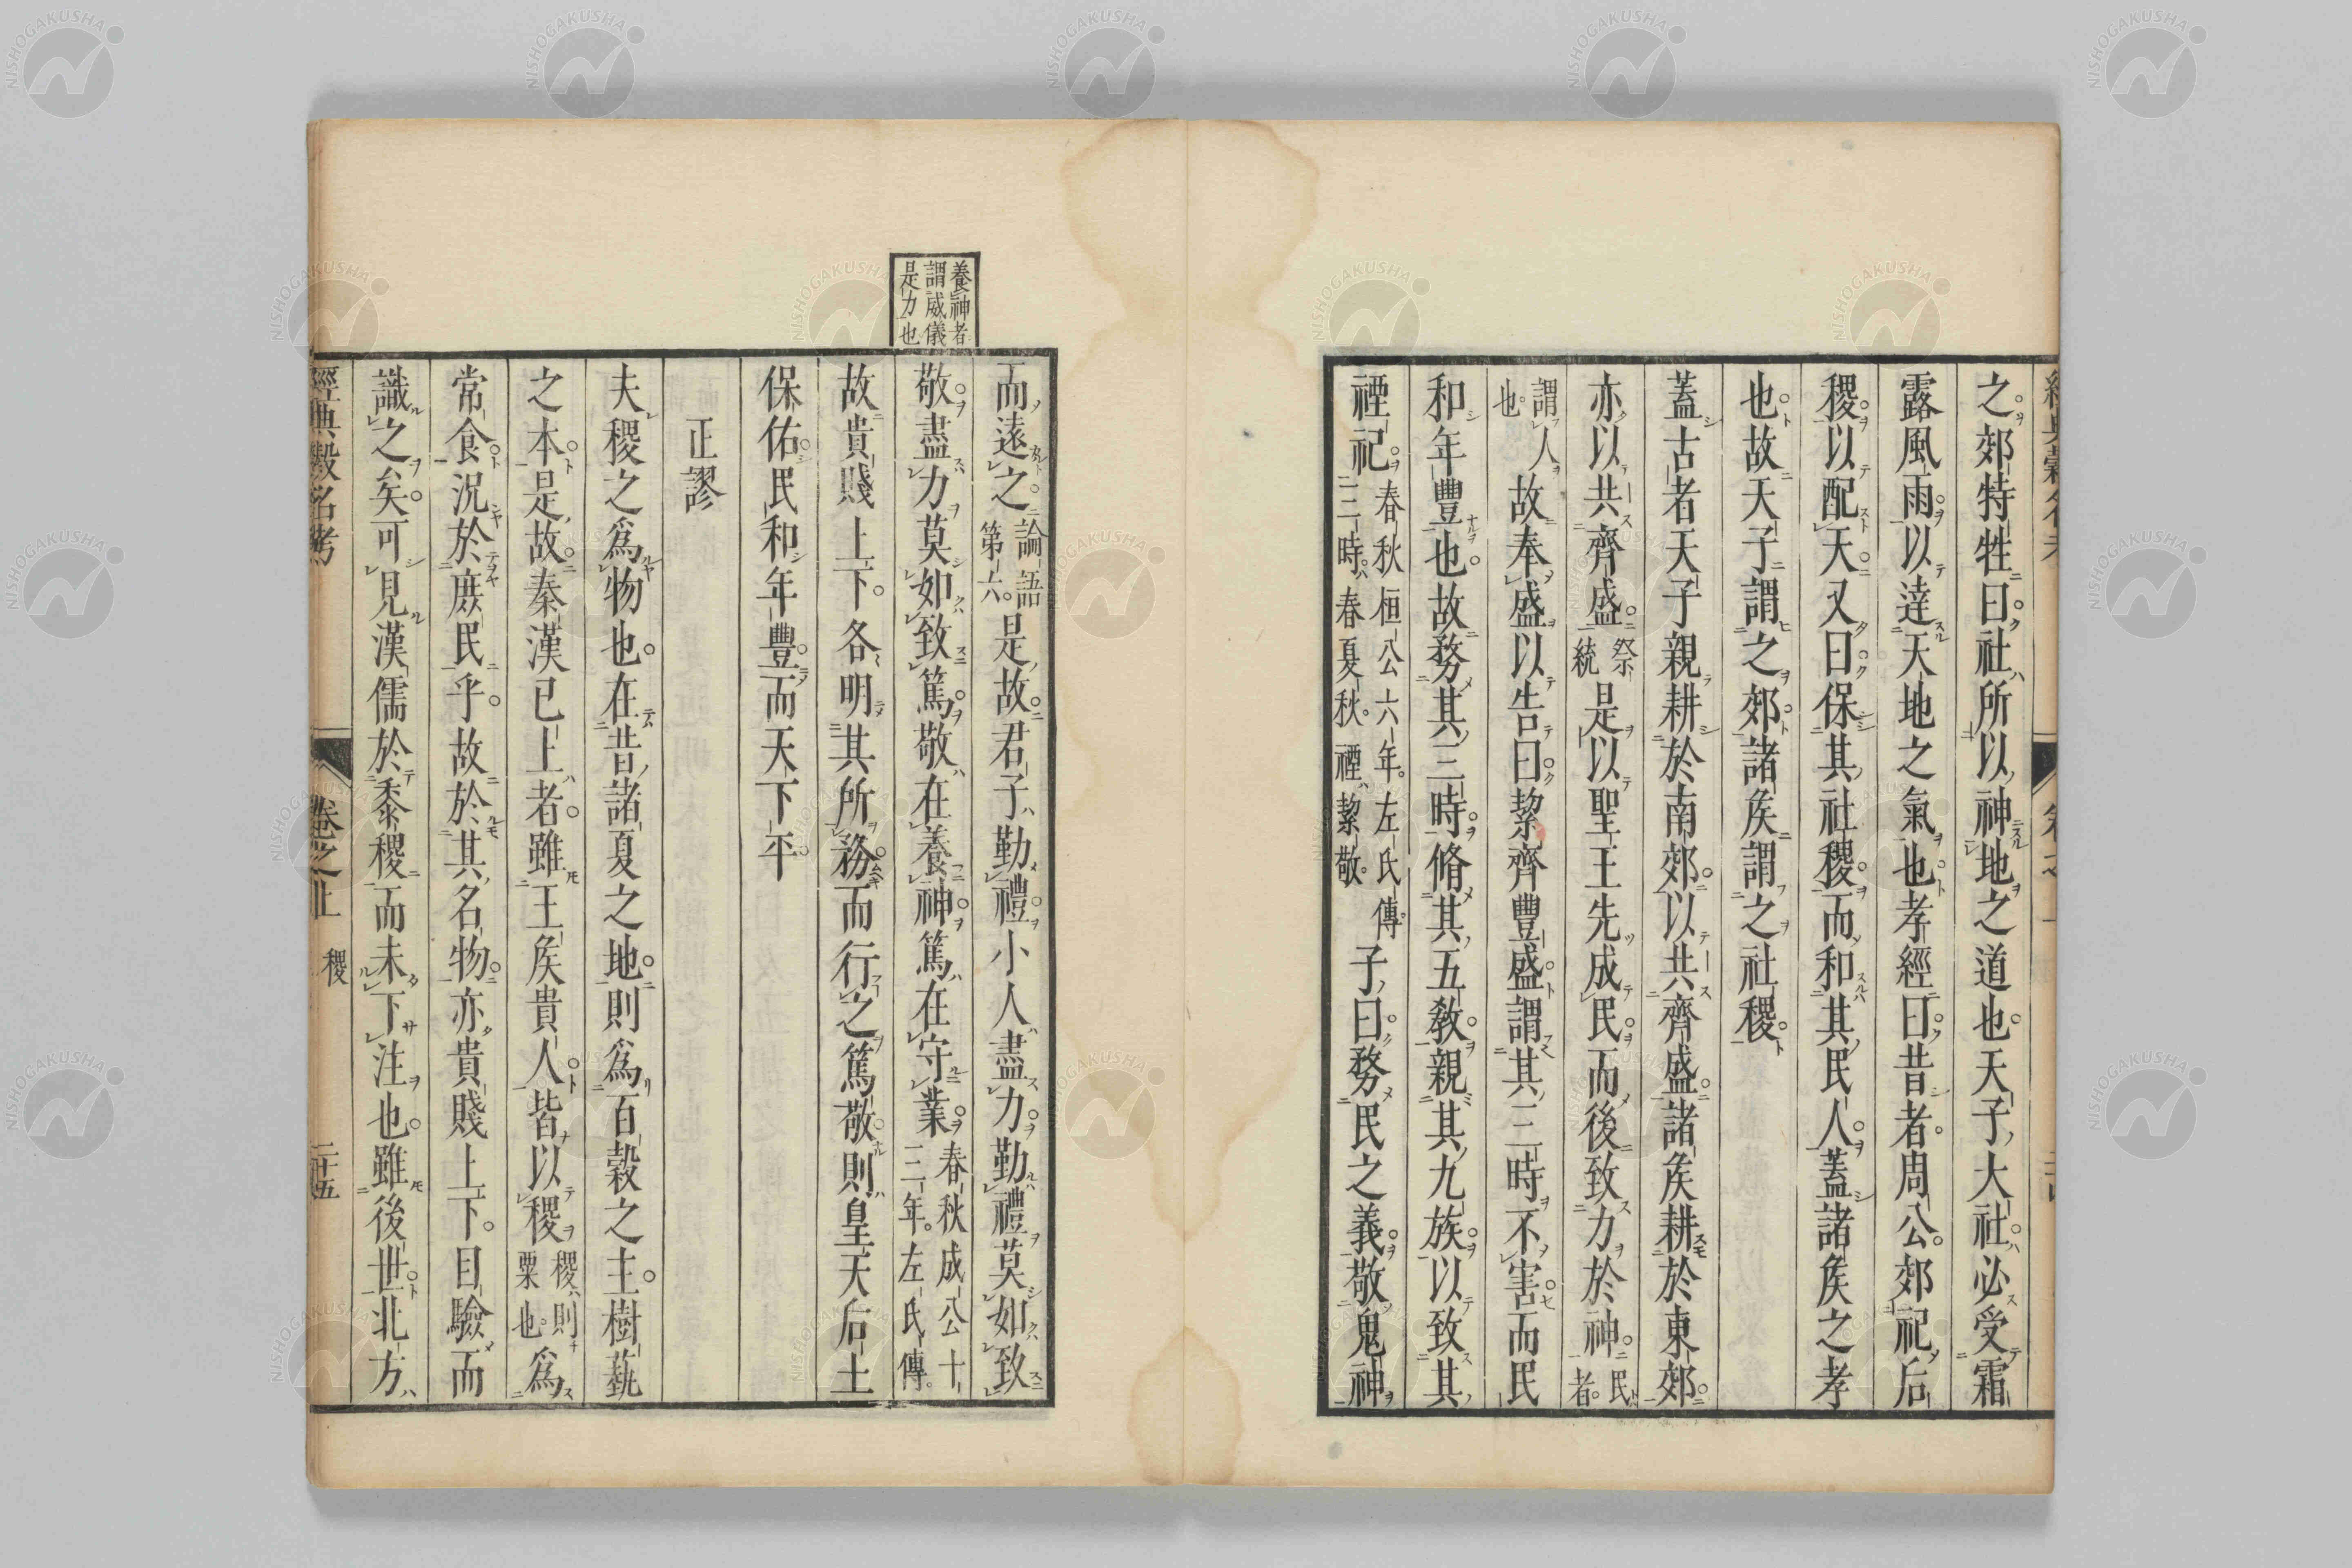 之郊特牲曰社所以神地之道也天子大社必受霜
露風雨以達天地之氣也孝經曰昔者周公郊祀后
稷以配天又曰保其社稷而和其民人蓋諸矦之孝
也故天子謂之郊諸矦謂之社稷
蓋古者天子親耕於南郊以共齊盛諸矦耕於東郊
亦以共齊盛祭統是以聖王先成民而後致力於神民者
謂人也故奉盛以告曰絜齊豐盛謂其三時不害而民
和年豐也故務其三時脩其五教親其九族以致其
禋祀春秋桓公六年左氏傳三時春夏秋禋絜敬子曰務民之義敬鬼神
養神者
謂威儀
是力也
而遠之論語第六是故君子勤禮小人盡力勤禮莫如致
敬盡力莫如致篤敬在養神篤在守業春秋成公十三年左氏傳
故貴賤上下各明其所務而行之篤敬則皇天后土
保佑民和年豐而天下平
正謬
夫稷之爲物也在昔諸夏之地則爲百穀之主樹蓺
之本是故秦漢已上者雖王矦貴人皆以稷稷則粟也爲
常食況於庶民乎故於其名物亦貴賤上下目驗而
識之矣可見漢儒於黍稷而未下注也雖後世北方
經典穀名考 卷之上 稷 二十五
NISHOGAKUSHA